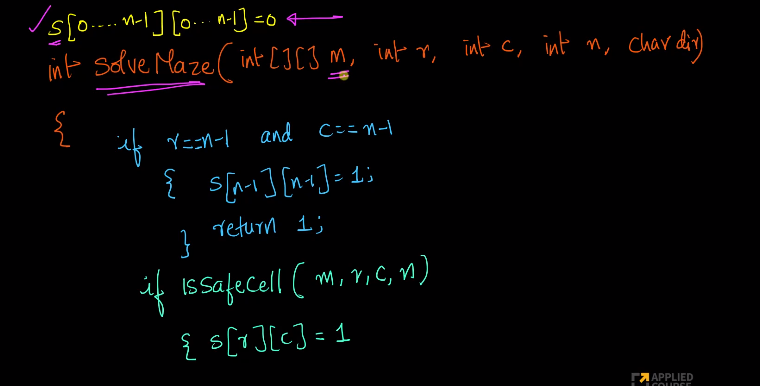 S[0.....n-1][0...n-1]=0
int solveMaze(int[][] m, int r, int c, int n, char dir)
{
if r==n-1 and c==n-1
{ s[n-1][n-1]=1;
return 1;
}
if isSafeCell(m, r, c, n)
{ s[r][c]=1
APPLIED
COURSE